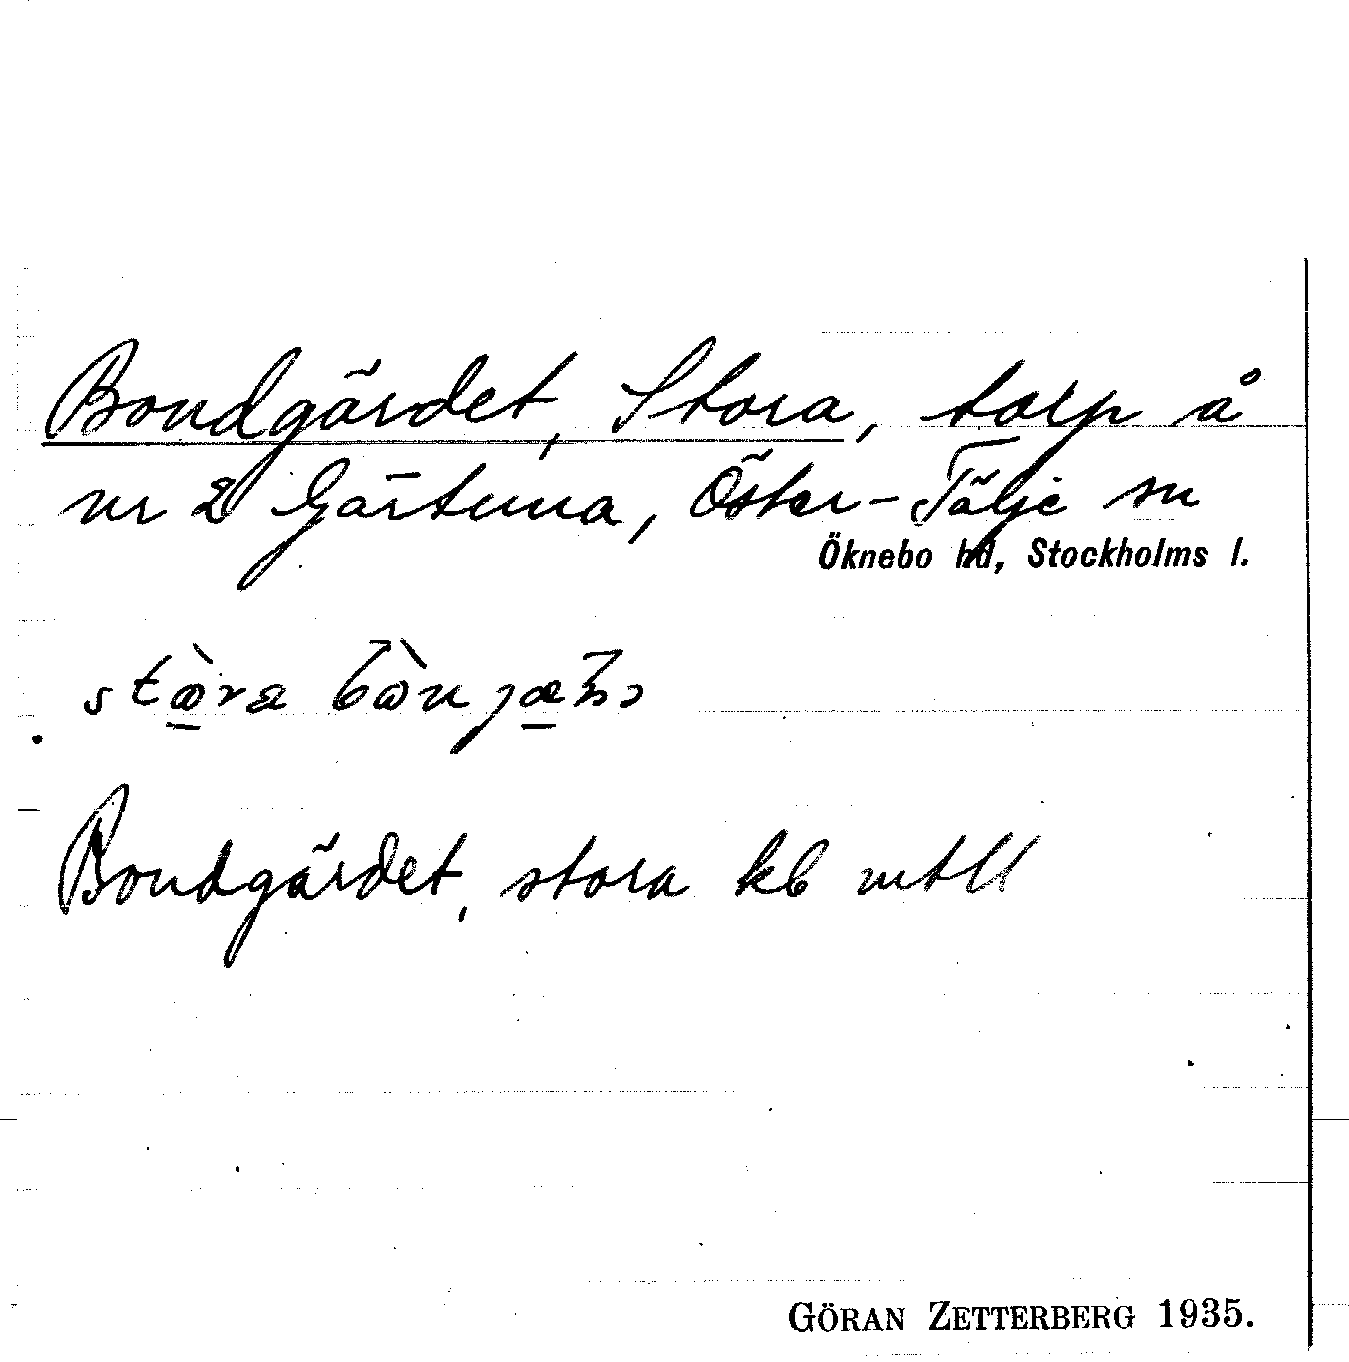 Bondgärdet, Stora, torp å
nr 2 Gärtuna, Öster-Tälje sn
Öknebo hd, Stockholms l.
Bondgärdet, stora kb mtll
GÖRAN ZETTERBERG 1935.